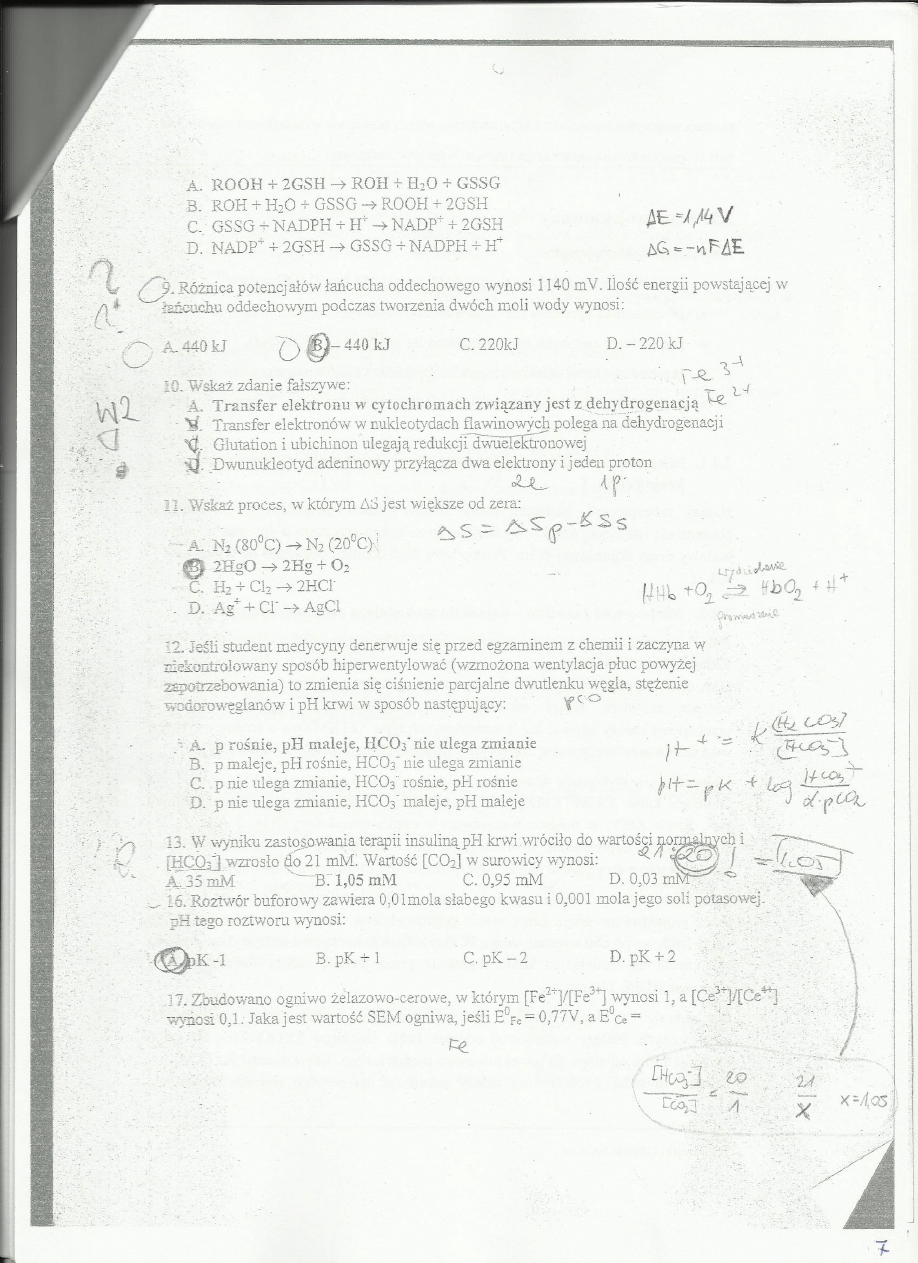 A. ROOH + 2GSH → ROH + H₂O + GSSG
B. ROH + H₂O + GSSG → ROOH + 2GSH
C. GSSG + NADPH + H⁺ → NADP⁺ + 2GSH
D. NADP⁺ + 2GSH → GSSG + NADPH + H⁺
ΔE = 1,14 V
ΔG = -nFΔE
9. Różnica potencjałów łańcucha oddechowego wynosi 1140 mV. Ilość energii powstającej w
łańcuchu oddechowym podczas tworzenia dwóch moli wody wynosi:
A. 440 kJ B. – 440 kJ C. 220kJ D. – 220 kJ
10. Wskaż zdanie fałszywe:
Fe 3+
A. Transfer elektronu w cytochromach związany jest z dehydrogenacją Fe 2+
B. Transfer elektronów w nukleotydach flawinowych polega na dehydrogenacji
C. Glutation i ubichinon ulegają redukcji dwuelektronowej
D. Dwunukleotyd adeninowy przyłącza dwa elektrony i jeden proton
2e 1p
11. Wskaż proces, w którym ΔS jest większe od zera:
ΔS = ΔSp -
A. N₂ (80⁰C) → N₂ (20⁰C)
B. 2HgO → 2Hg + O₂
C. H₂ + Cl₂ → 2HCl
D. Ag⁺ + Cl⁻ → AgCl
HHb + O₂ ⇄ HbO₂ + H⁺
12. Jeśli student medycyny denerwuje się przed egzaminem z chemii i zaczyna w
niekontrolowany sposób hiperwentylować (wzmożona wentylacja płuc powyżej
zapotrzebowania) to zmienia się ciśnienie parcjalne dwutlenku węgla, stężenie
wodorowęglanów i pH krwi w sposób następujący:
pCO
A. p rośnie, pH maleje, HCO₃⁻ nie ulega zmianie
B. p maleje, pH rośnie, HCO₃⁻ nie ulega zmianie
C. p nie ulega zmianie, HCO₃⁻ rośnie, pH rośnie
D. p nie ulega zmianie, HCO₃⁻ maleje, pH maleje
H⁺ = K [H₂CO₃] / [HCO₃⁻]
pH = pK + log HCO₃⁻ / α·pCO₂
13. W wyniku zastosowania terapii insuliną pH krwi wróciło do wartości normalnych i
[HCO₃⁻] wzrosło do 21 mM. Wartość [CO₂] w surowicy wynosi:
21:20 ! = 1,05
A. 35 mM B. 1,05 mM C. 0,95 mM D. 0,03 mM
16. Roztwór buforowy zawiera 0,01mola słabego kwasu i 0,001 mola jego soli potasowej.
pH tego roztworu wynosi:
A. pK -1 B. pK + 1 C. pK – 2 D. pK + 2
17. Zbudowano ogniwo żelazowo-cerowe, w którym [Fe²⁺]/[Fe³⁺] wynosi 1, a [Ce³⁺]/[Ce⁴⁺]
wynosi 0,1. Jaka jest wartość SEM ogniwa, jeśli E⁰Fe = 0,77V, a E⁰Ce =
Fe
[HCO₃⁻] / [CO₂] = 20 / 1 21 / X x=1,05
7